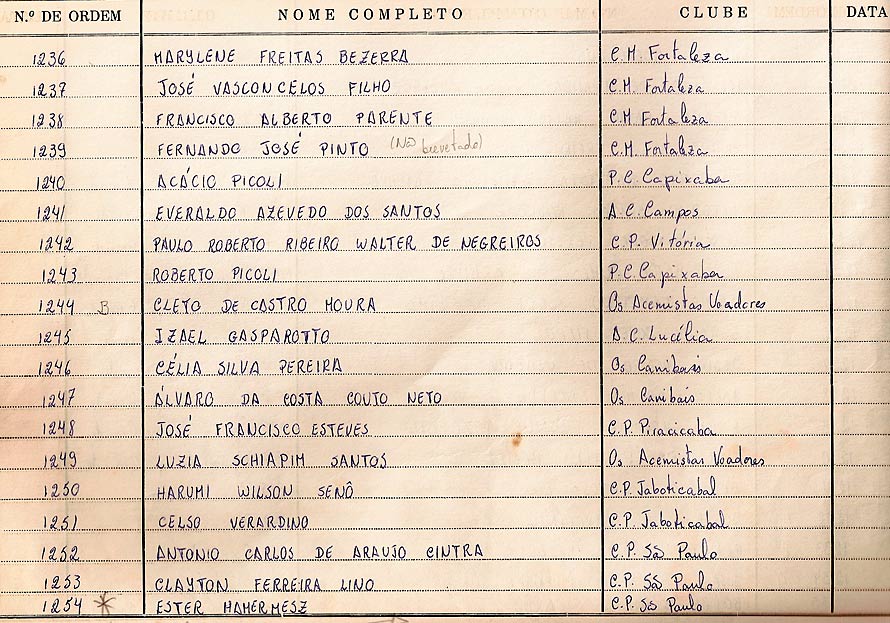 N.º DE ORDEM NOME COMPLETO CLUBE DATA
1236 MARYLENE FREITAS BEZERRA C.M. Fortaleza
1237 JOSÉ VASCONCELOS FILHO C.M. Fortaleza
1238 FRANCISCO ALBERTO PARENTE C.M. Fortaleza
1239 FERNANDO JOSÉ PINTO (Não brevetado) C.M. Fortaleza
1240 ACÁCIO PICOLI P.C. Capixaba
1241 EVERALDO AZEVEDO DOS SANTOS A.C. Campos
1242 PAULO ROBERTO RIBEIRO WALTER DE NEGREIROS C.P. Vitória
1243 ROBERTO PICOLI P.C. Capixaba
1244 B CLETO DE CASTRO MOURA Os Acemistas Voadores
1245 IZAEL GASPAROTTO A.C. Lucélia
1246 CÉLIA SILVA PEREIRA Os Canibais
1247 ÁLVARO DA COSTA COUTO NETO Os Canibais
1248 JOSÉ FRANCISCO ESTEVES C.P. Piracicaba
1249 LUZIA SCHIAPIM SANTOS Os Acemistas Voadores
1250 HARUMI WILSON SENÔ C.P. Jaboticabal
1251 CELSO VERARDINO C.P. Jaboticabal
1252 ANTONIO CARLOS DE ARAUJO CINTRA C.P. São Paulo
1253 CLAYTON FERREIRA LINO C.P. São Paulo
1254 * ESTER HAMERMESZ C.P. São Paulo